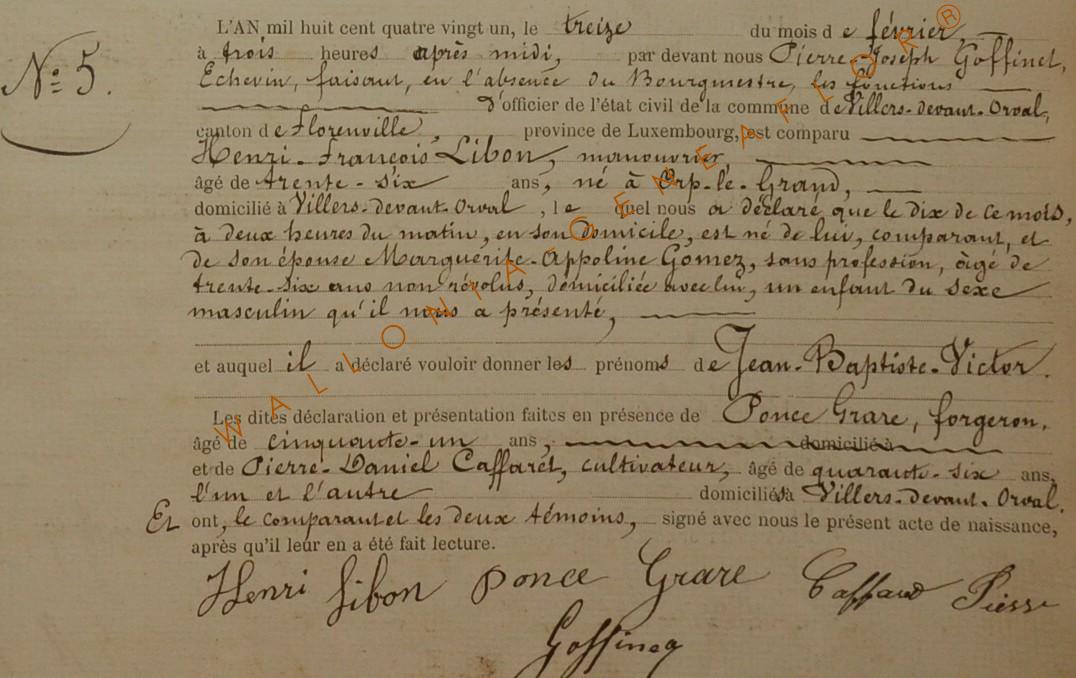 L'AN mil huit cent quatre vingt un, le treize du mois de février
à trois heures après midi, par devant nous Pierre-Joseph Goffinet,
Nº 5.
Echevin, faisant, en l'absence du Bourgmestre, les fonctions
d'officier de l'état civil de la commune de Villers-devant-Orval,
canton de Florenville, province de Luxembourg, est comparu
Henri-François Libon, manouvrier,
âgé de trente-six ans, né à Orp-le-Grand,
domicilié à Villers-devant-Orval, lequel nous a déclaré que le dix de ce mois,
à deux heures du matin, en son domicile, est né de lui, comparant, et
de son épouse Marguerite-Appoline Gomez, sans profession, âgé de
trente-six ans non révolus, domiciliée avec lui, un enfant du sexe
masculin qu'il nous a présenté,
et auquel il a déclaré vouloir donner les prénoms de Jean-Baptiste-Victor.
Les dites déclaration et présentation faites en présence de Ponce Grare, forgeron,
âgé de cinquante-un ans, domicilié à
et de Pierre-Daniel Caffaret, cultivateur, âgé de quarante-six ans,
l'un et l'autre domiciliés à Villers-devant-Orval.
Et ont, le comparant et les deux témoins, signé avec nous le présent acte de naissance,
après qu'il leur en a été fait lecture.
Henri Libon Ponce Grare Pierre
WALLONIA-GENEAFLOR®